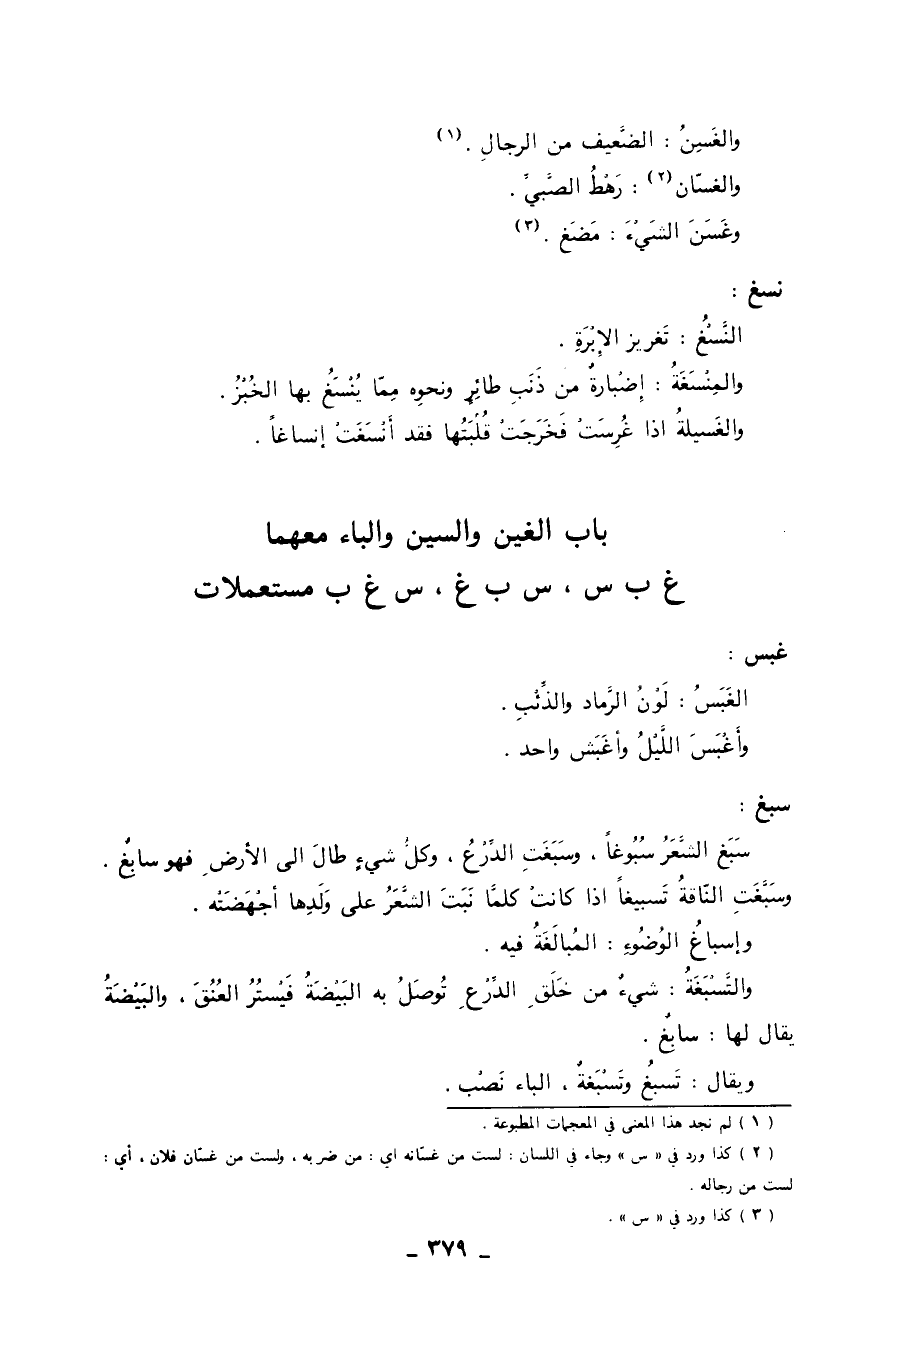 والغَسِنُ : الضَّعيف من الرجالِ . (١)
والغسّان(٢) : رَهْطُ الصَّبيِّ .
وغَسَنَ الشَيْءَ : مَضَغ . (٣)
نسغ :
النَّسْغُ : تَغريز الإِبْرَةِ .
والمِنْسَغَةُ : إضْبارةٌ من ذَنَبِ طائِرٍ ونحوِه مِمّا يُنْسَغُ بها الخُبْزُ .
والغَسيلةُ اذا غُرِسَتْ فَخَرَجَتْ قُلْبَتُها فقد أَنْسَغَتْ إنساغاً .
باب الغين والسين والباء معهما
غ ب س ، س ب غ ، س غ ب مستعملات
غبس :
الغَبَسُ : لَوْنُ الرَّماد والذِّئْبِ .
وأَغْبَسَ اللَّيْلُ وأغَبَش واحد .
سبغ :
سَبَغ الشَّعَرُ سُبُوغاً ، وسَبَغَتِ الدِّرْعُ ، وكلُ شيءٍ طالَ الى الأرضِ فهو سابغٌ .
وسَبَّغَتِ النّاقةُ تَسبيغاً اذا كانتْ كلمَّا نَبَتَ الشَّعَرُ على وَلَدِها أجْهَضَتْه .
وإسباغُ الوُضُوءِ : المُبالَغَةُ فيه .
والتَّسْبَغَةُ : شيءٌ من حَلَقِ الدِّرْعِ تُوصَلُ به البَيْضَةُ فَيْستُرُ العُنُقَ ، والبَيْضَةُ
يقال لها : سابغٌ .
ويقال : تَسبغُ وتَسْبَغةٌ ، الباء نَصْب .
( ١ ) لم نجد هذا المعنى في المعجمات المطبوعة .
( ٢ ) كذا ورد في « س » وجاء في اللسان : لست من غسّانه اي : من ضربه ، ولست من غسّان فلان ، أي :
لست من رجاله .
( ٣ ) كذا ورد في « س » .
ـ ٣٧٩ ـ